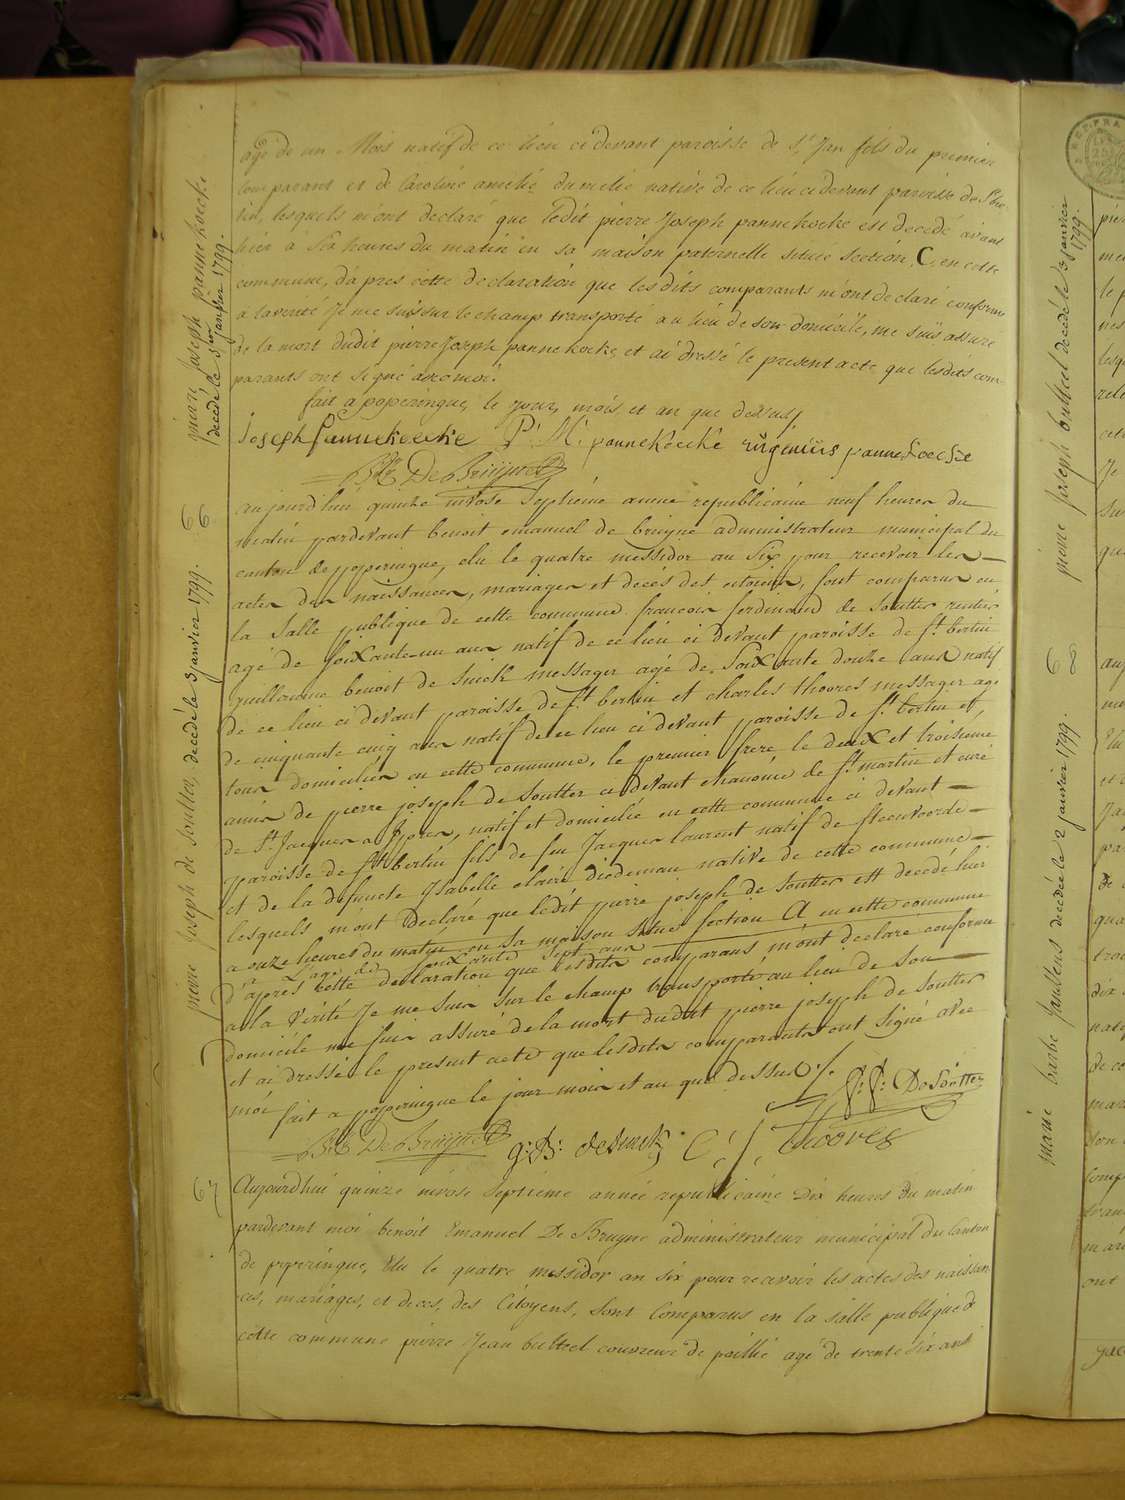 agé de un Mois natif de ce lieu ci devant paroisse de St Jan fils du premier
comparant et de Caroline amelie dumelie native de ce lieu ci devant paroisse de St be
tin, lesquels m'ont declaré que ledit pierre Joseph pannekoeke est decedé avant
hier à Six heures du matin en sa maison paternelle situee Section C, en cette
commune, d'apres cette declaration que lesdits comparants m'ont declaré conforme
a la verité Je me suis sur le champ transporté au lieu de son domicile, me suis assuré
de la mort dudit pierre Joseph pannekoeke, et ai dressé le present acte que lesdits com-
parants ont signé avec moi.
fait a poperengue, le jour, mois et an que dessus/
Joseph pannekoeke P. M. pannekoecke eugeniüs pannekoecke
De Bruijne
66
aujourd'hui quinze nivose Septieme annee republicaine neuf heures du
matin pardevant benoit emanuel de bruyne administrateur municipal du
canton de poperingue, elu le quatre messidor an Six pour recevoir les
actes des naissances, mariages et decés des citoiens, sont comparus en
la Salle publique de cette commune francois ferdinand de Soutter rentier
agé de Soixante-un ans natif de ce lieu ci devant paroisse de St bertin
guillaume benoit de Smick messager agé de Soixante douze ans natif
de ce lieu ci devant paroisse de St bertin et charles thoores messager age
de cinquante cinq ans natif de ce lieu ci devant paroisse de St bertin et,
tous domiciliés en cette commune, le premier frere le deux et troisieme
amis de pierre joseph de Soutter ci devant chanoine de St martin et curé
de St Jacques a Ypres, natif et domicilié en cette commune ci devant
paroisse de St bertin fils de feu Jacques laurent natif de steenvoorde
et de la defuncte Isabelle claire diedeman native de cette commune
lesquels m'ont declaré que ledit pierre joseph de Soutter est decede hier
a onze heures du matin en sa maison située section A en cette commune
L'age de soixante sept ans
d'apres cette declaration que lesdits comparans m'ont declaré conforme
a la Verité Je me suis sur le champ transporté au lieu de son
domicile me suis assuré de la mort dudit pierre joseph de Soutter
et ai dressé le present acte que lesdits comparants ont signé avec
moi
fait a poperingue le jour mois et an que dessus /.
f: f: De Soutter
De Bruijne g: B: deSmick C: J. Thoores
67
Aujourd'hui quinze nivose Septieme année republicaine Dix heures du matin
pardevant moi benoit Emanuel De Bruyne administrateur municipal du Canton
de poperingue, Elu le quatre messidor an six pour recevoir les actes des naissan
ces, mariages, et deces, des Citoyens, Sont Comparus en la salle publique de
cette commune pierre Jean bulteel couvreur de paillie agé de trente six ans
pierre joseph pannekoecke
decédé le 3 janvier 1799.
pierre Joseph de Soutter, decédé le 3 janvier 1799.
pierre joseph bulteel decédé le 3 janvier
1799.
68
marie barbe pauwels decédée le 2 janvier 1799.